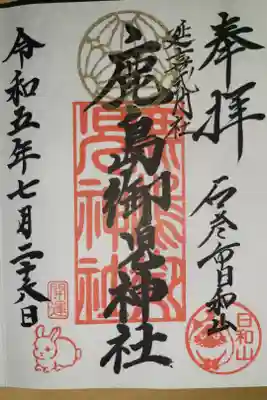 奉拝
石巻市日和山
日和山
延喜式内社
鹿島御児神社
鹿島御児神社
令和五年七月二十八日
開運